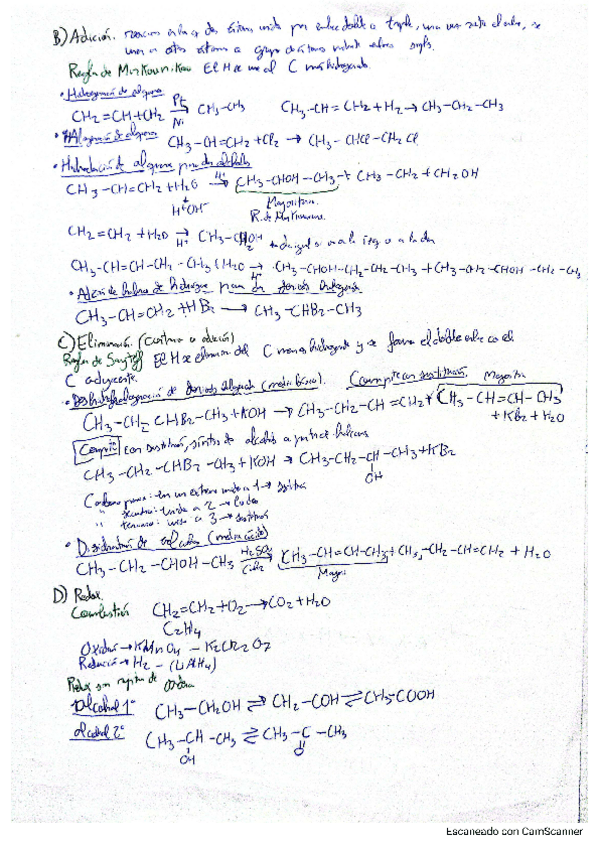 B) Adición. reaccion entre dos átomos unidos por enlace doble o triple, una vez roto el enlace, se
unen a otros átomos o grupo de átomos mediante enlaces simples.
Regla de Markounikou El H se une al C más hidrogenado.
• Hidrogenación de alquenos
CH2=CH+CH2 Pt Ni CH3-CH3 CH3-CH=CH2+H2→CH3-CH2-CH3
• Halogenación de alquenos CH3-CH=CH2+Cl2 → CH3-CHCl-CH2Cl
• Hidratación de alquenos para dar alcoholes
CH3-CH=CH2+H2O H+ → CH3-CHOH-CH3+CH3-CH2+CH2OH
H+OH- Mayoritario
R. de Markounikou
CH2=CH2+H2O → H+ CH3-CH2OH
CH3-CH=CH-CH2-CH3+H2O → H+ CH3-CHOH-CH2-CH2-CH3+CH3-CH2-CHOH-CH2-CH3
• Adición de haluros de hidrógeno para dar derivados halogenados
CH3-CH=CH2+HBr → CH3-CHBr-CH3
C) Eliminación. (contraria a adición)
Regla de Saytzeff El H se elimina del C menos hidrogenado y se forma el doble enlace con el
C adyacente.
• Deshidrohalogenación de derivados halogenados (medio básico). Compite con sustitución. Mayoritario
CH3-CH2-CHBr-CH3+KOH → CH3-CH2-CH=CH2+CH3-CH=CH-CH3
+KBr+H2O
Compite con sustitución, síntesis de alcoholes a partir de haluros
CH3-CH2-CHBr-CH3+KOH → CH3-CH2-CH-CH3+KBr
OH
Carbono primario: en un extremo unido a 1 →
" secundario: unido a 2 →
" terciario: unido a 3 →
• Deshidratación de alcoholes (medio ácido)
CH3-CH2-CHOH-CH3 H2SO4 → CH3-CH=CH-CH3+CH3-CH2-CH=CH2+H2O
Mayor.
D) Redox.
Combustión CH2=CH2+O2→CO2+H2O
C2H4
Oxidar→KMnO4 - K2Cr2O7
Reducción→H2 - (LiAlH4)
Redox sin ruptura de cadena
Alcohol 1º CH3-CH2OH ⇌ CH2-COH ⇌ CH3-COOH
alcohol 2º CH3-CH-CH3 ⇌ CH3-C-CH3
OH O
Escaneado con CamScanner